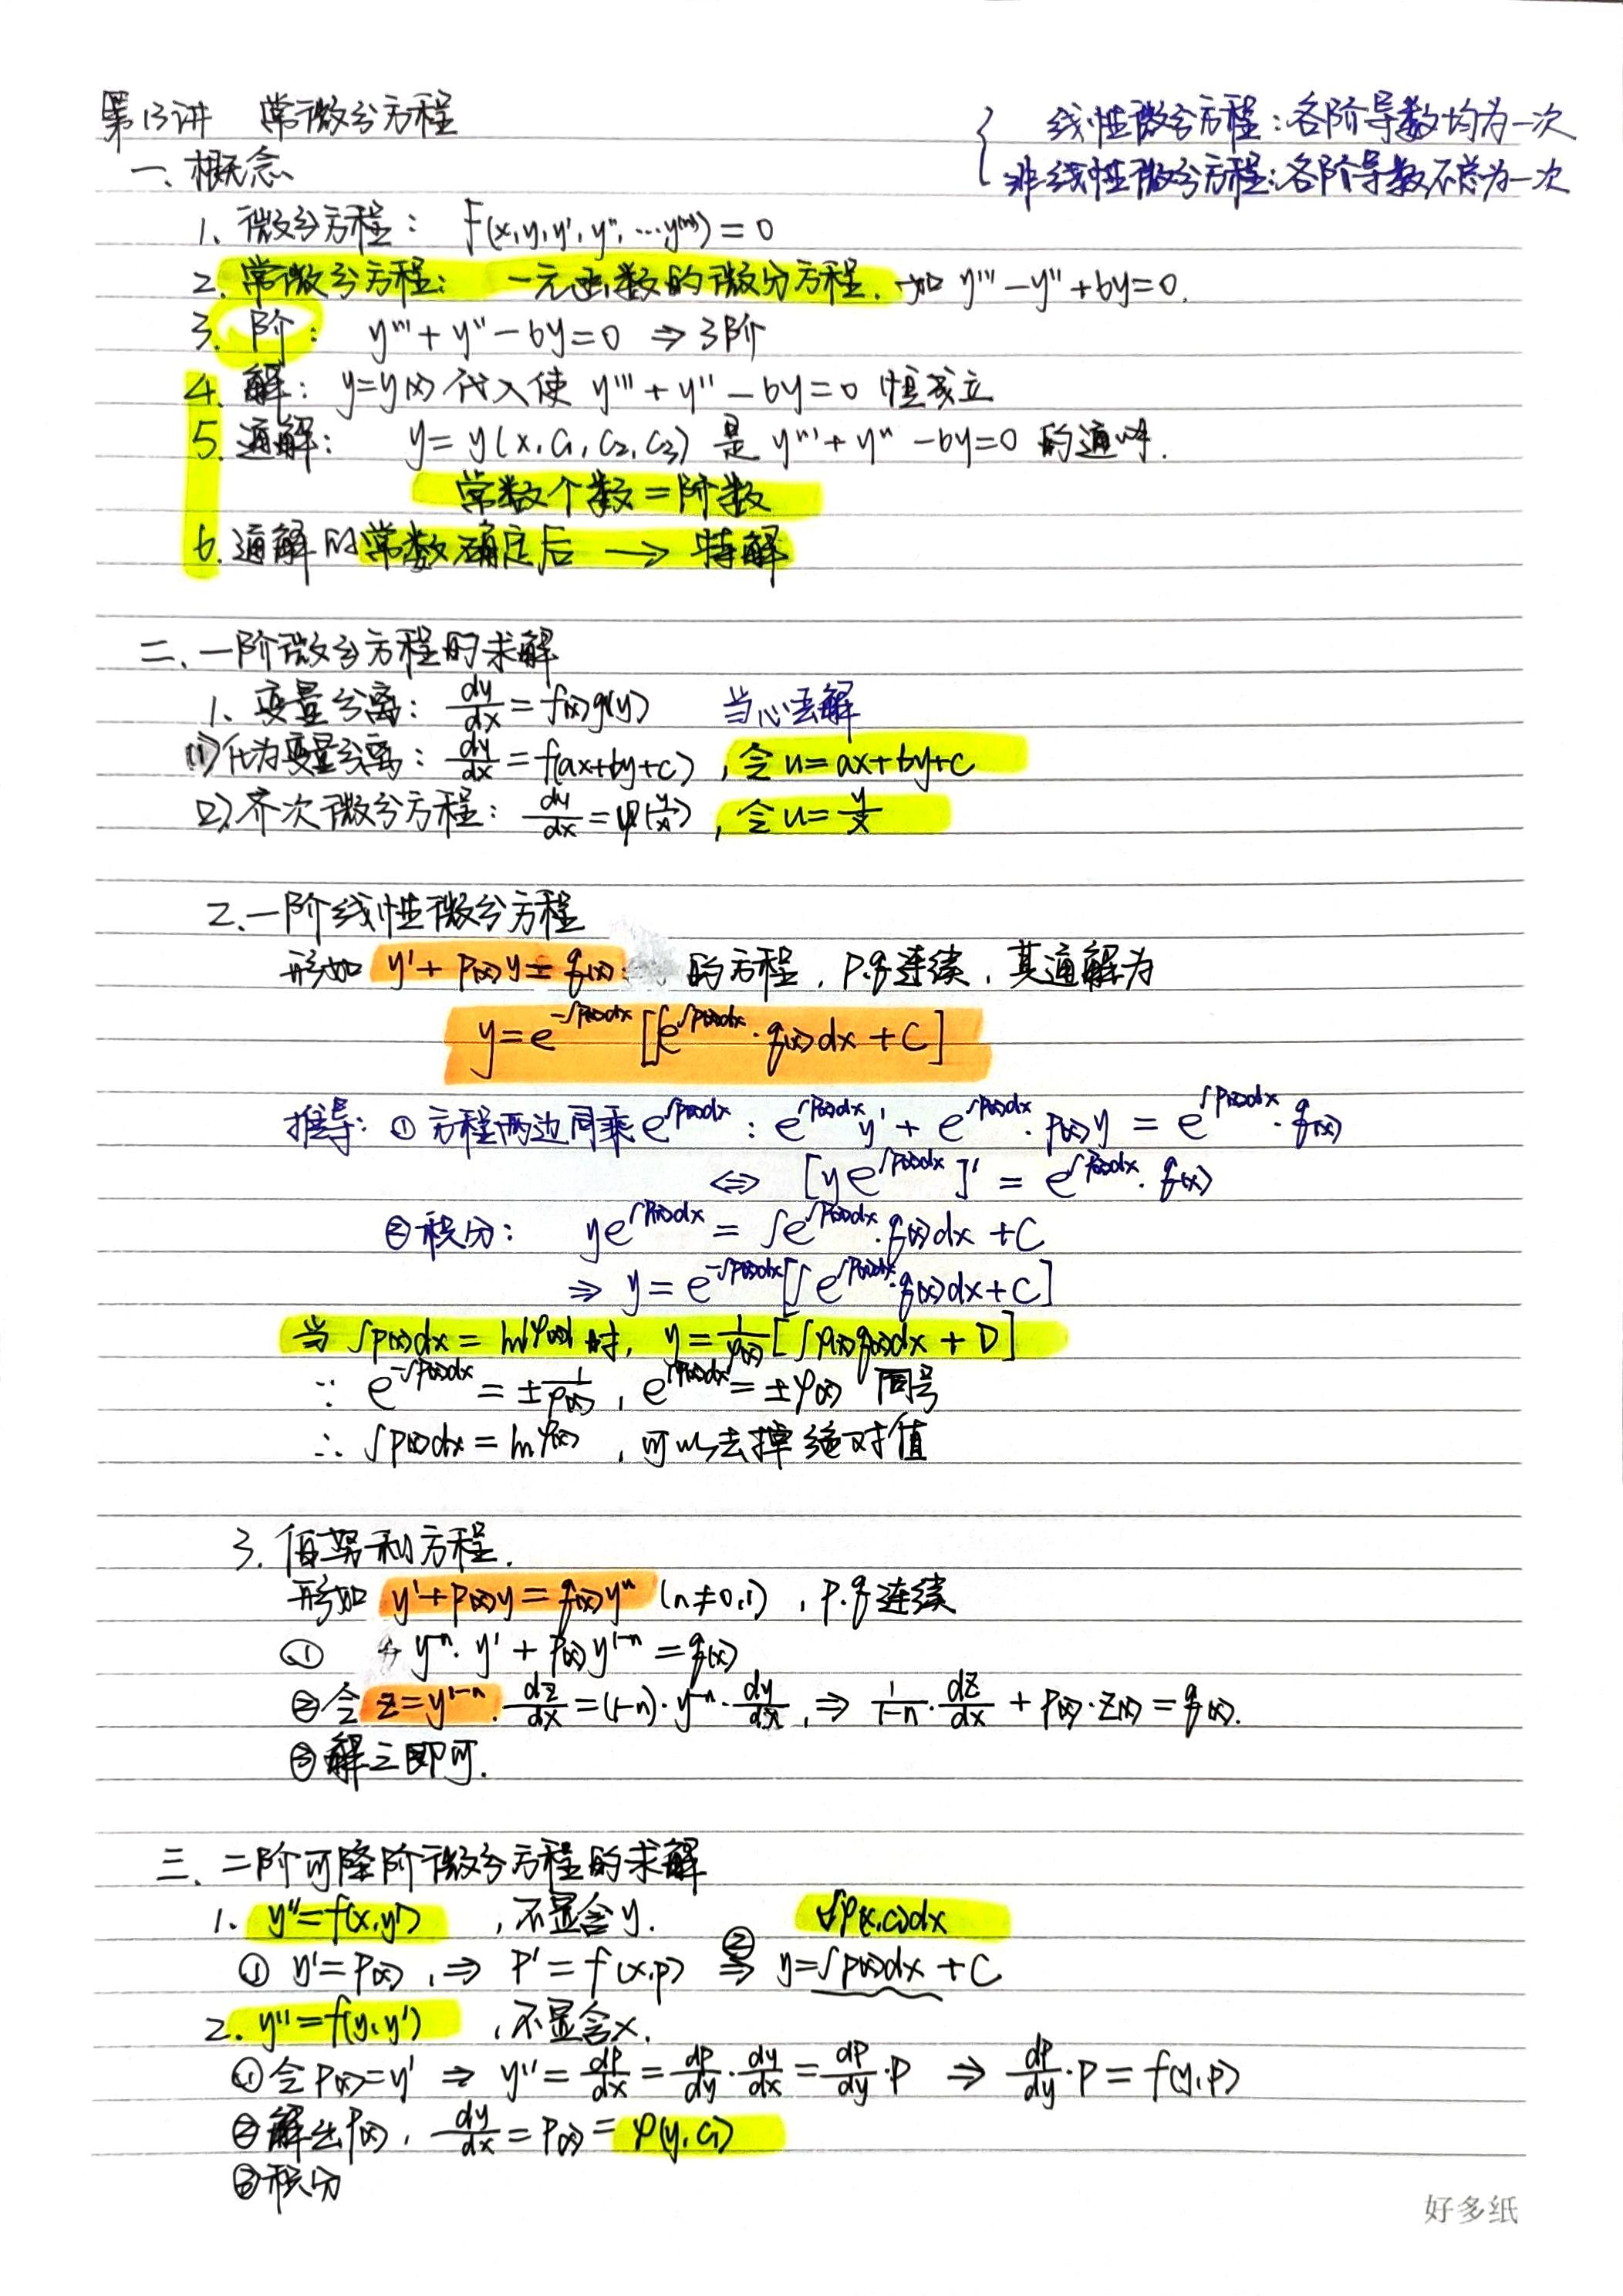 第13讲 常微分方程
{ 线性微分方程:各阶导数均为一次
非线性微分方程:各阶导数不总为一次
一、概念
1、微分方程: F(x,y,y',y'',…y⁽ⁿ⁾)=0
2. 常微分方程: 一元函数的微分方程. 如 y'''-y''+6y=0.
3. 阶: y'''+y''-6y=0 ⇒3阶
4. 解: y=y(x) 代入使 y'''+y''-6y=0 恒成立
5. 通解: y=y(x,C₁,C₂,C₃) 是 y'''+y''-6y=0 的通解.
常数个数=阶数
6. 通解的常数确定后 → 特解
二、一阶微分方程的求解
1、变量分离: dy/dx=f(x)g(y) 当心丢解
(1)化为变量分离: dy/dx=f(ax+by+c), 令u=ax+by+c
(2)齐次微分方程: dy/dx=φ(y/x), 令u=y/x
2、一阶线性微分方程
形如 y'+p(x)y=q(x) 的方程, p.q连续, 其通解为
y=e^(-∫p(x)dx)[∫e^(∫p(x)dx)·q(x)dx+C]
推导: ① 方程两边同乘e^(∫p(x)dx): e^(∫p(x)dx)y'+e^(∫p(x)dx)·p(x)y=e^(∫p(x)dx)·q(x)
⇔ [ye^(∫p(x)dx)]'=e^(∫p(x)dx)·q(x)
②积分: ye^(∫p(x)dx)=∫e^(∫p(x)dx)·q(x)dx+C
⇒ y=e^(-∫p(x)dx)[∫e^(∫p(x)dx)·q(x)dx+C]
当 ∫p(x)dx=ln|φ(x)|时, y=1/φ(x)[∫φ(x)q(x)dx+D]
∵ e^(-∫p(x)dx)=±1/φ(x), e^(∫p(x)dx)=±φ(x) 同号
∴ ∫p(x)dx=lnφ(x), 可以去掉绝对值
3. 伯努利方程.
形如 y'+p(x)y=q(x)yⁿ (n≠0,1), p.q连续
① y⁻ⁿ·y'+p(x)y¹⁻ⁿ=q(x)
②令 z=y¹⁻ⁿ. dz/dx=(1-n)·y⁻ⁿ·dy/dx, ⇒ 1/(1-n)·dz/dx+p(x)·z(x)=q(x).
③解之即可.
三、二阶可降阶微分方程的求解
1. y''=f(x,y'), 不显含y. ∫φ(x,c₁)dx
① y'=p(x), ⇒ p'=f(x,p) ②⇒ y=∫p(x)dx+C
2. y''=f(y,y'), 不显含x.
①令p(x)=y' ⇒ y''=dp/dx=dp/dy·dy/dx=dp/dy·p ⇒ dp/dy·p=f(y,p)
②解出p(x), dy/dx=p(x)=φ(y,C₁)
③积分
好多纸